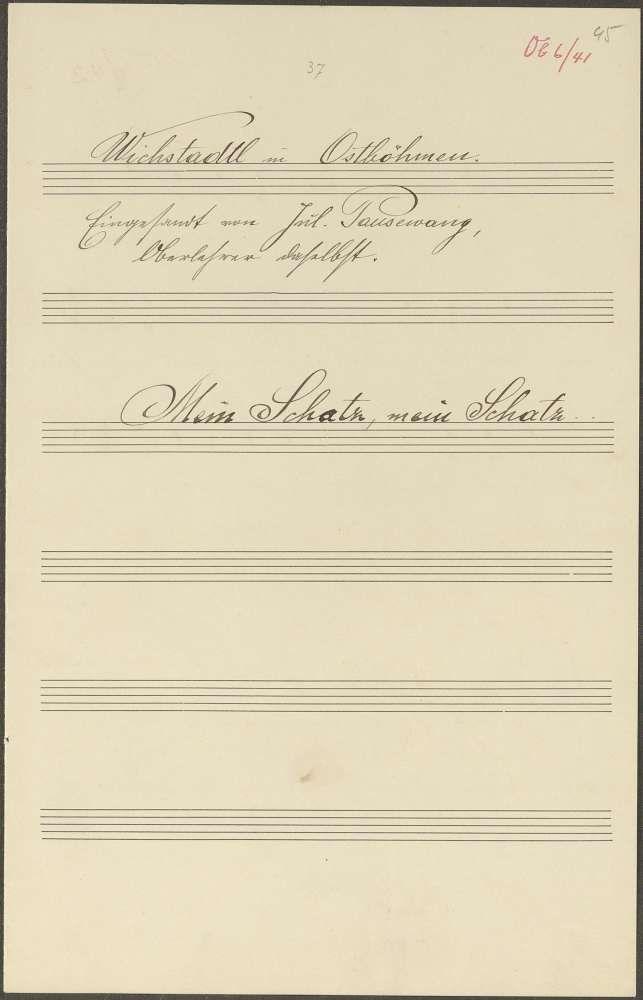 45
Ob 6/41
37
Wichstadtl in Ostböhmen.
Eingesandt von Jul. Pausewang,
Oberlehrer daselbst.
Mein Schatz, mein Schatz..